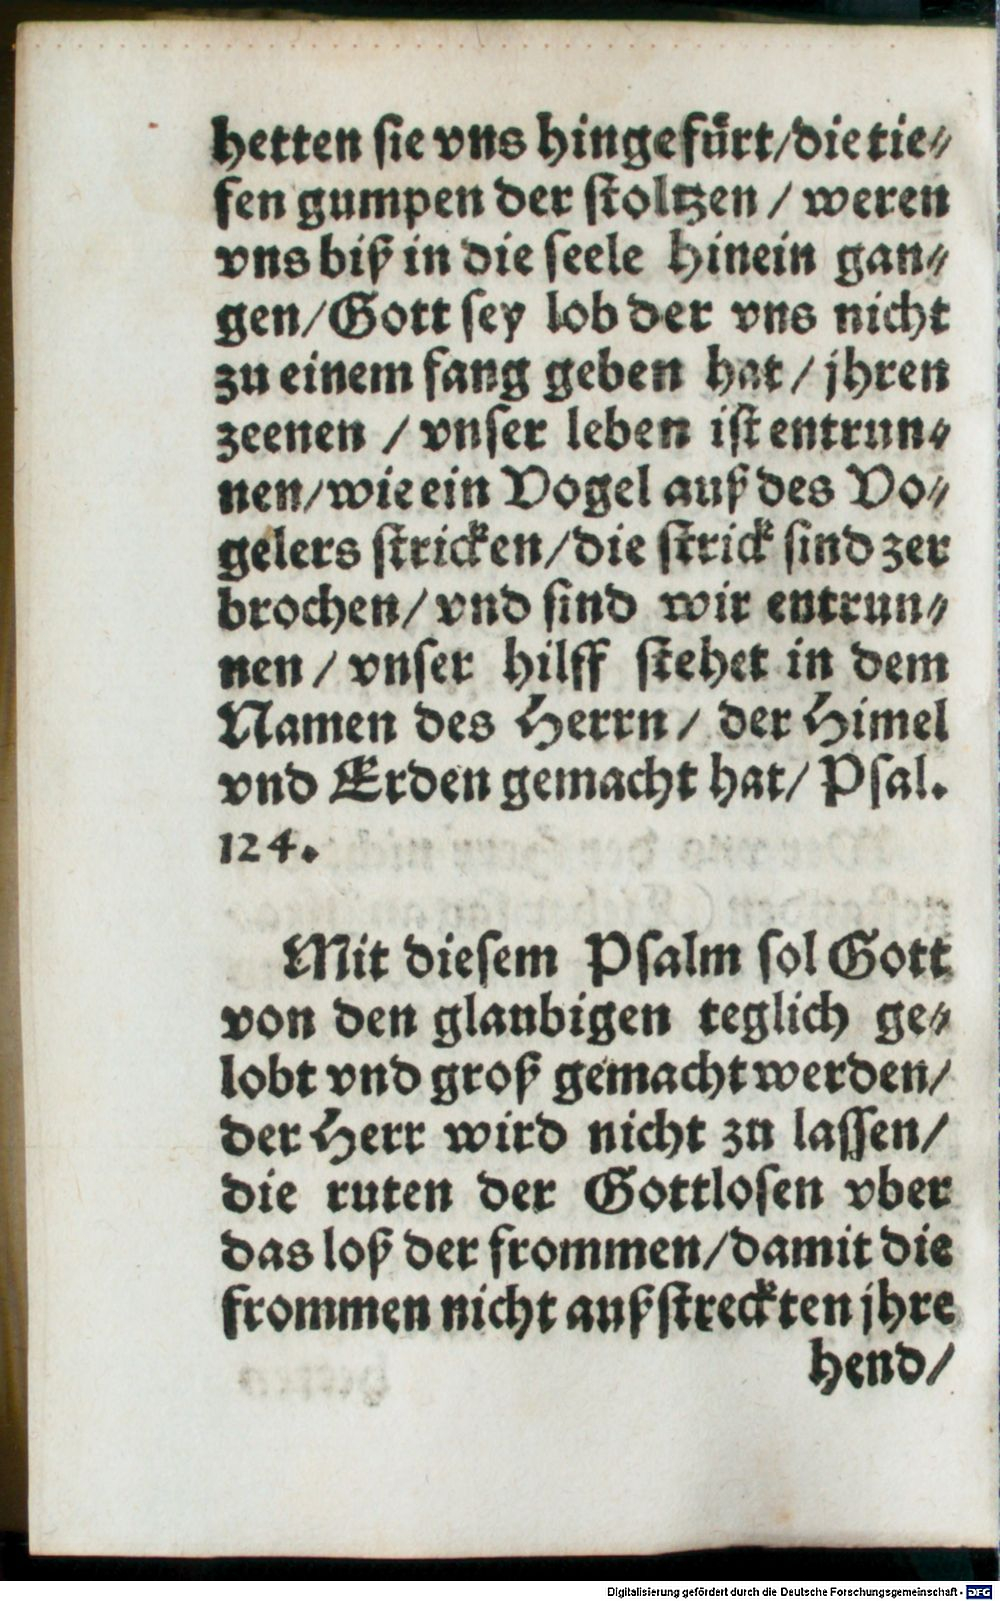 hetten sie vns hingefürt/die tie⸗
fen gumpen der stoltzen / weren
vns biß in die seele hinein gan⸗
gen/Gott sey lob der vns nicht
zu einem fang geben hat / jhren
zeenen / vnser leben ist entrun⸗
nen/wie ein Vogel auß des Vo⸗
gelers stricken/die strick sind zer
brochen/ vnd sind wir entrun⸗
nen / vnser hilff stehet in dem
Namen des Herrn/ der Himel
vnd Erden gemacht hat/ Psal.
124.
Mit diesem Psalm sol Gott
von den glaubigen teglich ge⸗
lobt vnd groß gemacht werden/
der Herr wird nicht zu lassen/
die ruten der Gottlosen vber
das loß der frommen/damit die
frommen nicht außstreckten jhre
hend/
Digitalisierung gefördert durch die Deutsche Forschungsgemeinschaft - DFG